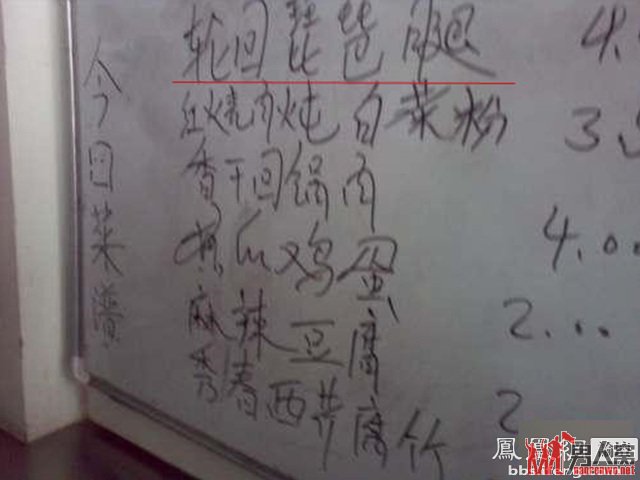 今日菜谱
轮回琵琶腿 4.
红烧肉炖白菜粉 3.
香干回锅肉
黄瓜鸡蛋 4.00
麻辣豆腐 2...
香春西芹腐竹 2
鳳凰網
男人窝